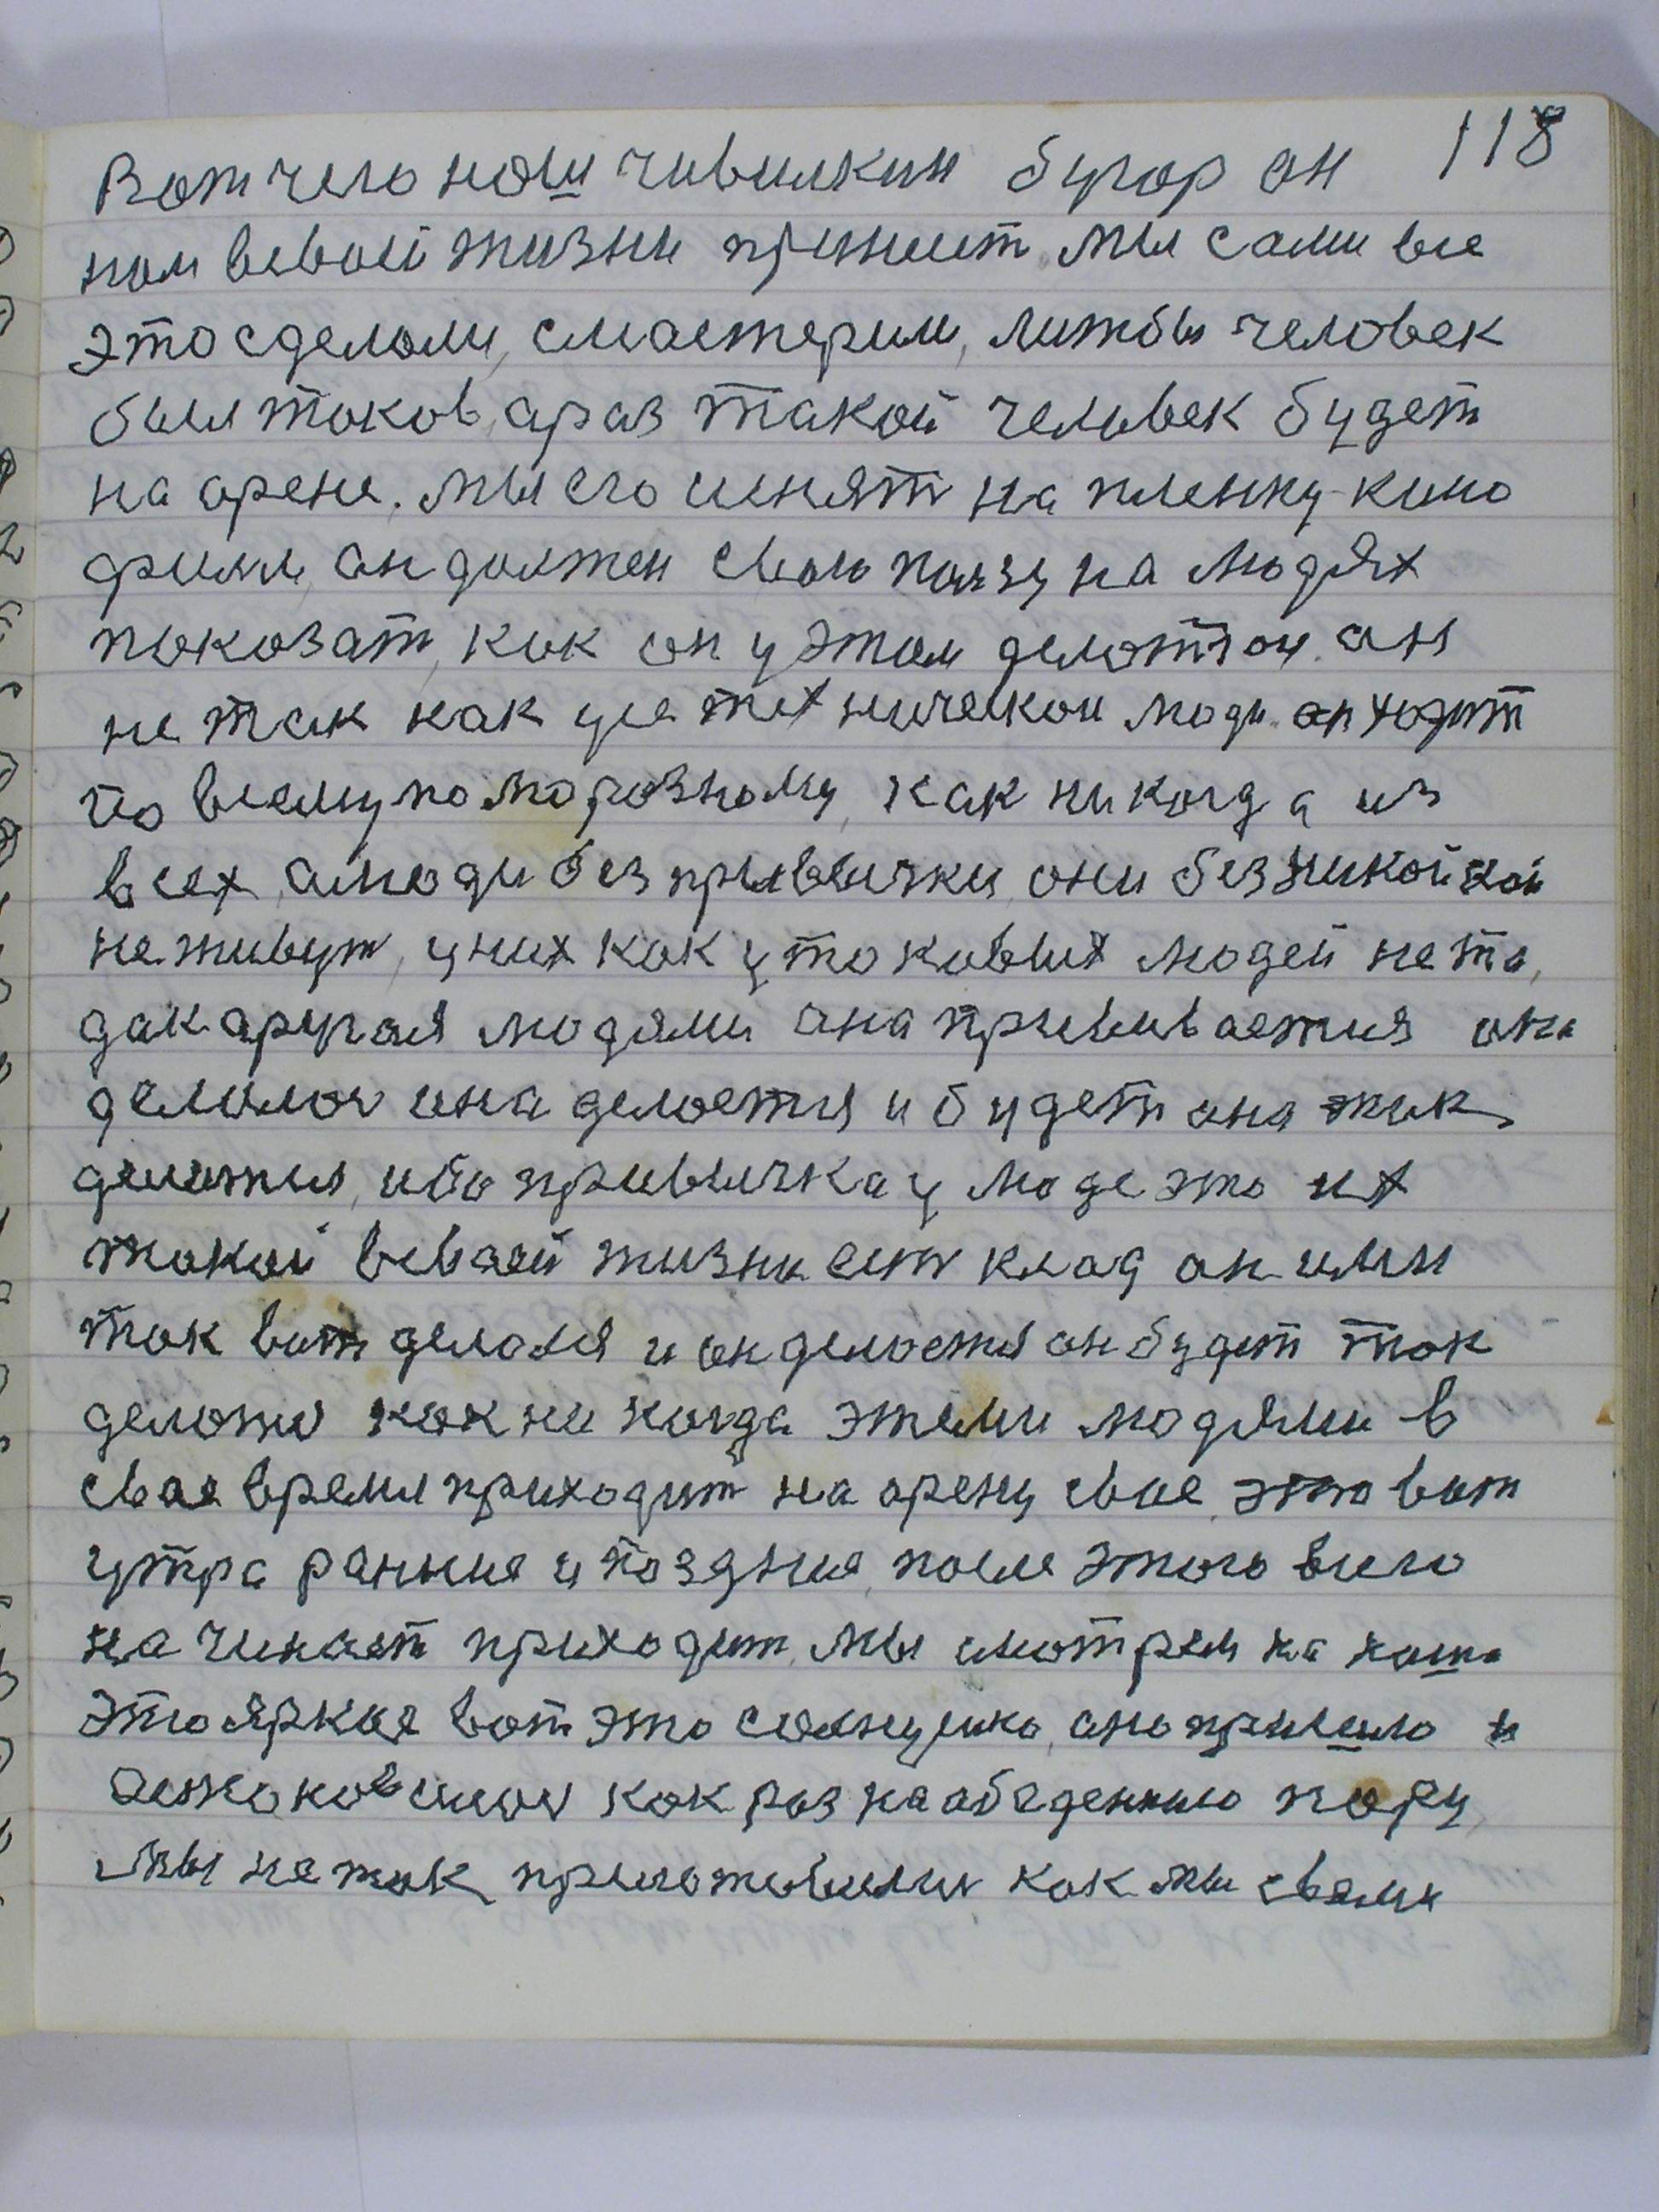 118
Вот чего наш чивилкин бугор он
нам всвоей жизни принисет мы сами все
это сделали, смастерили, литбы человек
был таков, араз такой человек будет
на арене. мы его иснят на пленку кино
фильм, он должен свою ползу на людях
показат, как он уэтом делатсоч. он
не так как усе технической люди он ходит
по всему по моразному, как никогда из
всех, алюди без прывычки они без никойкой
не живут, уних как утоковых людей не та,
дак аругая людями она прививается она
делалас она делается и будет она так
делатся, ибо привычка у люде это их
такой всвоей жизни ест клад он ими
так вот делался и он делается он будет так
делатся как не когда этеми людями в
свое время приходит на арену свое, это вот
утра ранния и поздния, после этого всего
начинает приходит. мы смотрем на наша
это яркое вот это солнушко, оно пришло и
астановилос как раз на обеденною пору,
мы не так приготовилис как мы свами